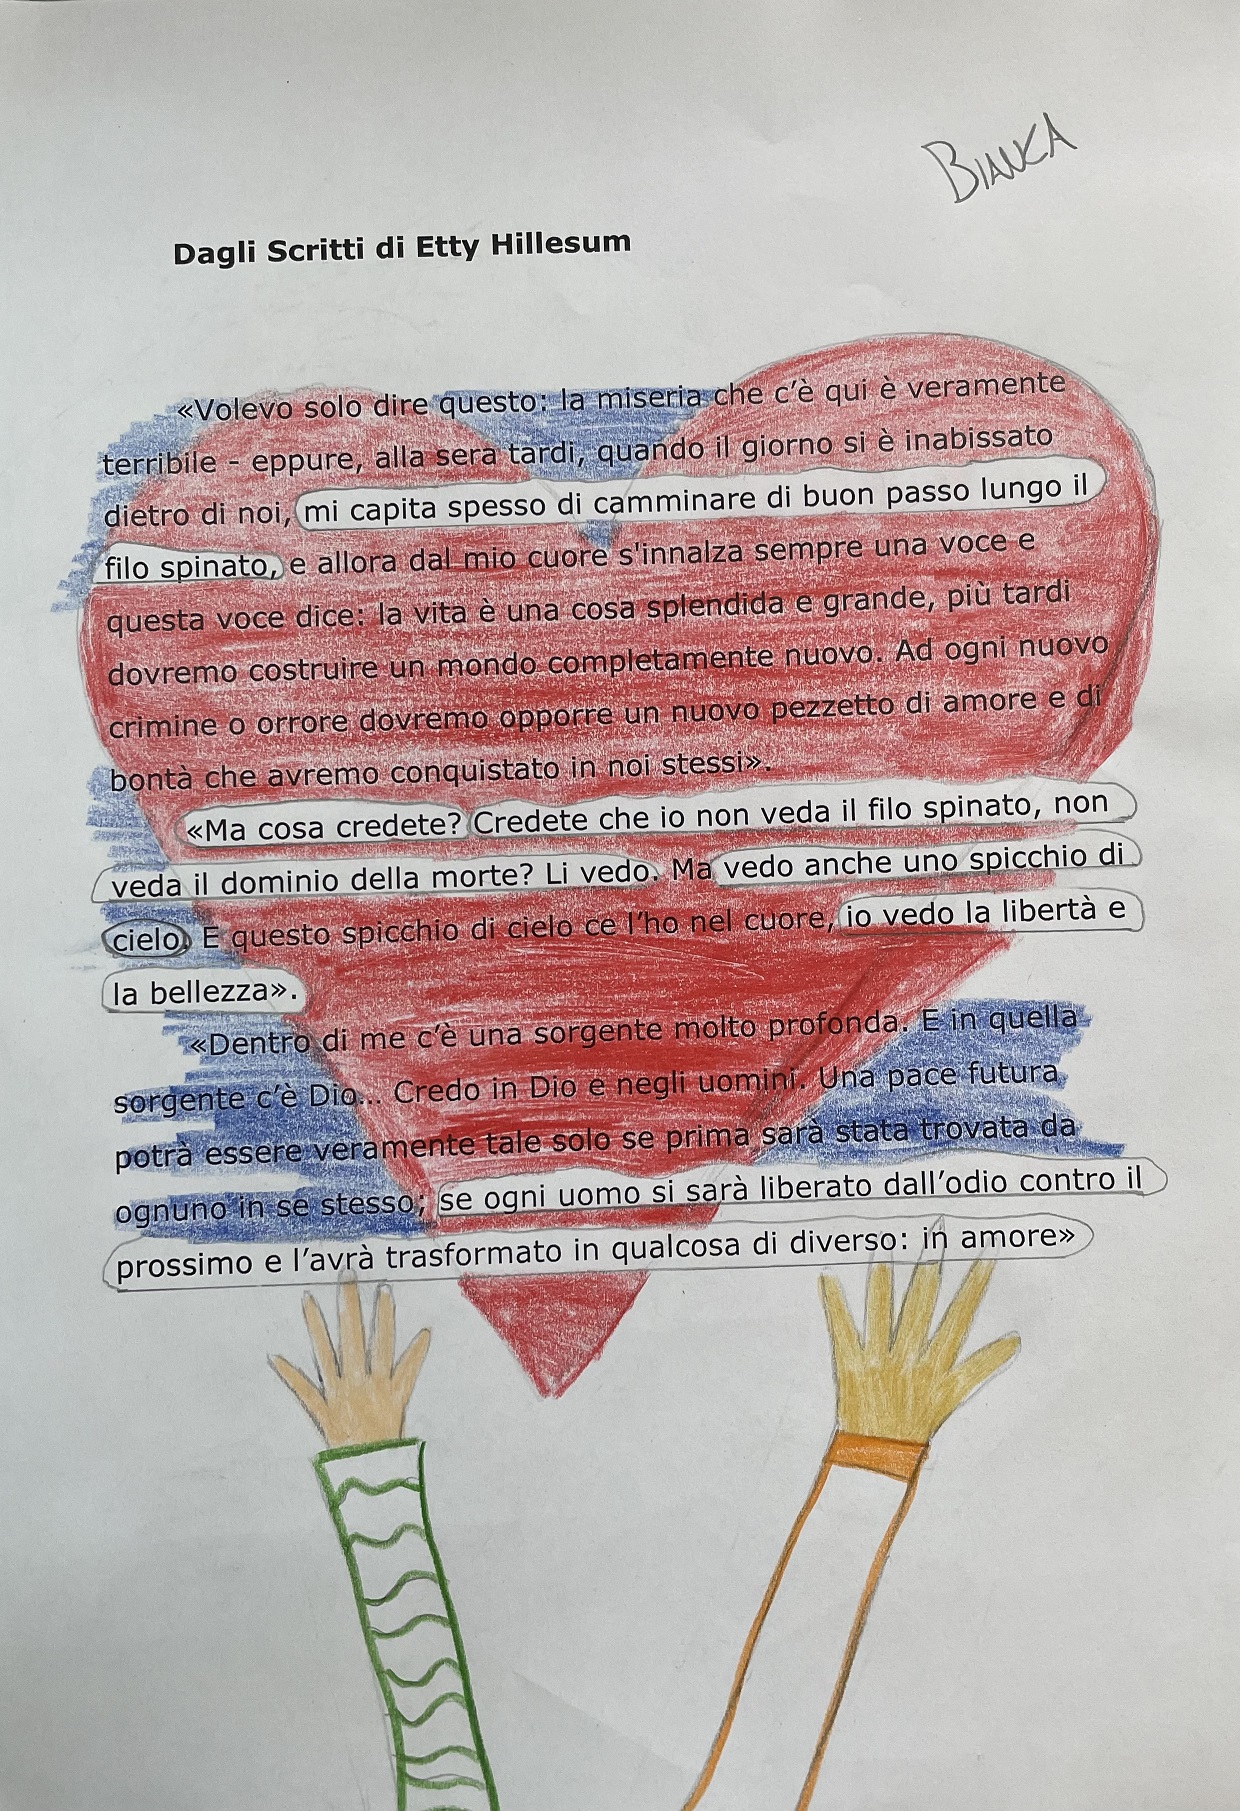 BIANCA
Dagli Scritti di Etty Hillesum
«Volevo solo dire questo: la miseria che c'è qui è veramente
terribile - eppure, alla sera tardi, quando il giorno si è inabissato
dietro di noi, mi capita spesso di camminare di buon passo lungo il
filo spinato, e allora dal mio cuore s'innalza sempre una voce e
questa voce dice: la vita è una cosa splendida e grande, più tardi
dovremo costruire un mondo completamente nuovo. Ad ogni nuovo
crimine o orrore dovremo opporre un nuovo pezzetto di amore e di
bontà che avremo conquistato in noi stessi».
«Ma cosa credete? Credete che io non veda il filo spinato, non
veda il dominio della morte? Li vedo. Ma vedo anche uno spicchio di
cielo. E questo spicchio di cielo ce l'ho nel cuore, io vedo la libertà e
la bellezza».
«Dentro di me c'è una sorgente molto profonda. E in quella
sorgente c'è Dio... Credo in Dio e negli uomini. Una pace futura
potrà essere veramente tale solo se prima sarà stata trovata da
ognuno in se stesso; se ogni uomo si sarà liberato dall'odio contro il
prossimo e l'avrà trasformato in qualcosa di diverso: in amore»